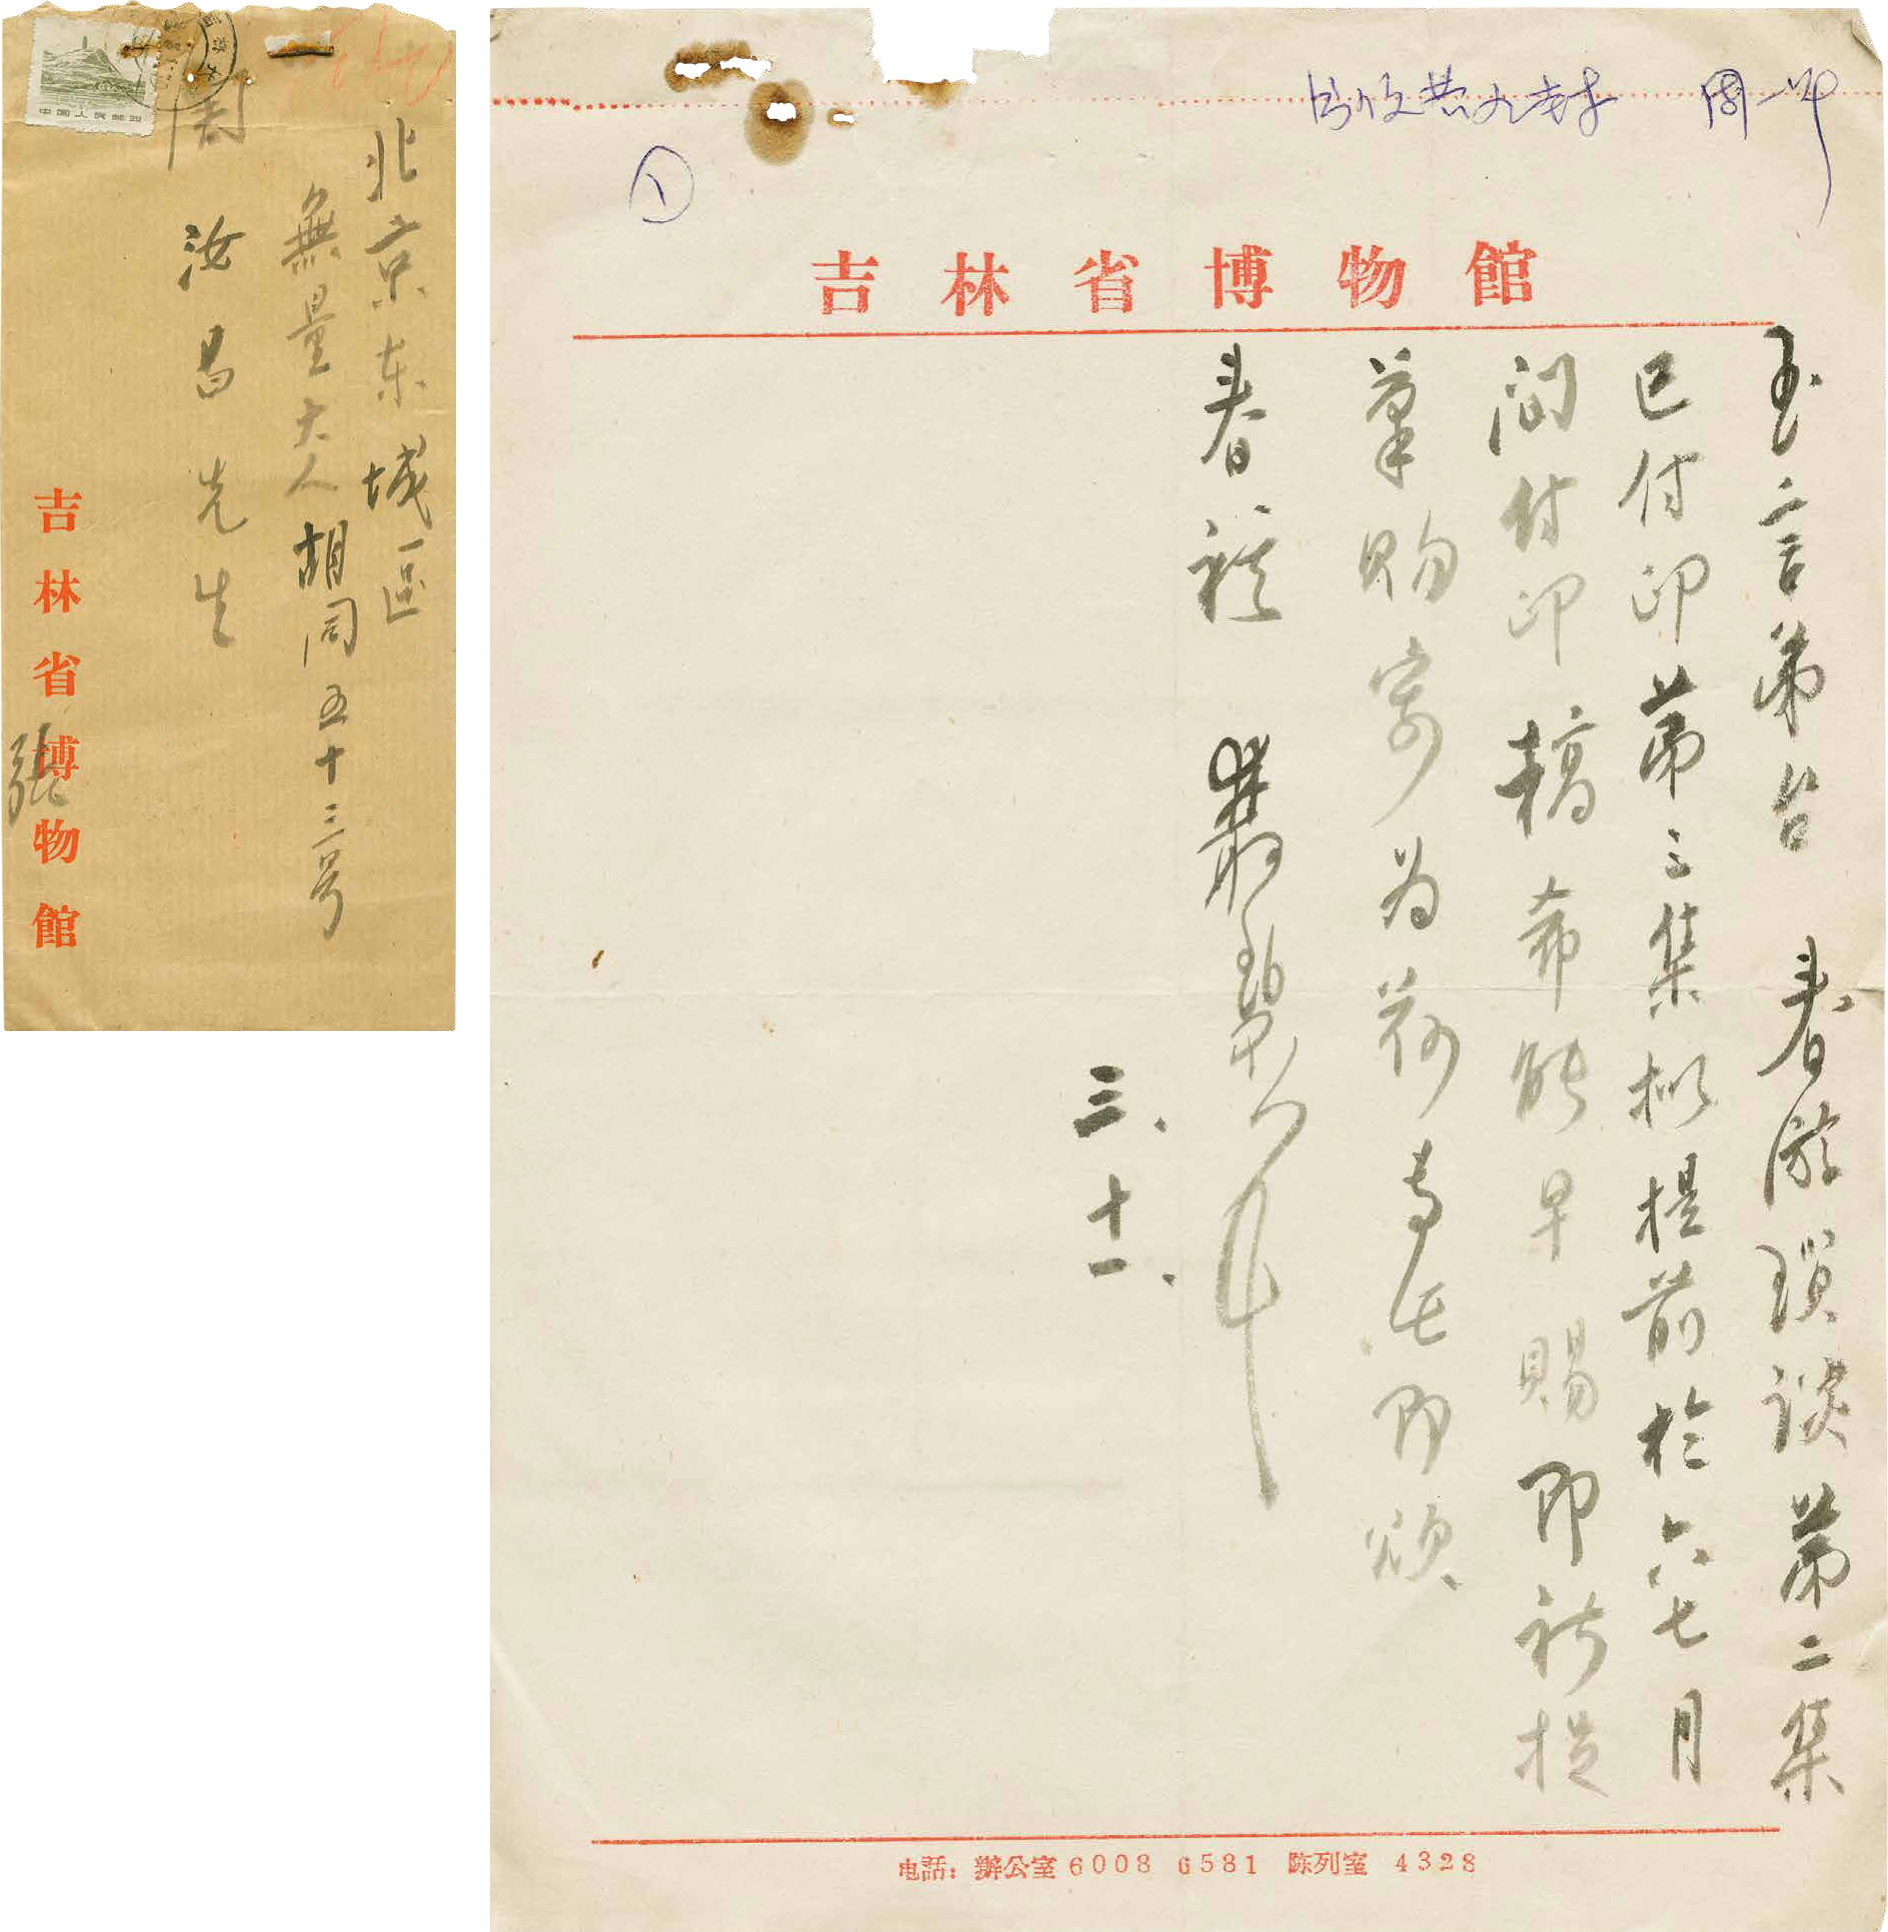 中国人民邮政
北京东城區
無量大人胡同五十三号
周汝昌先生
吉林省博物館
張
周
①
吉林省博物館
玉言弟台 春游瑣谈第二集
已付印第三集拟提前於六七月
间付印稿希能早賜即祈提
筆賜寄为荷专此即颂
春祺 叢碧
三、十一、
电話：辦公室6008 6581 陈列室 4328